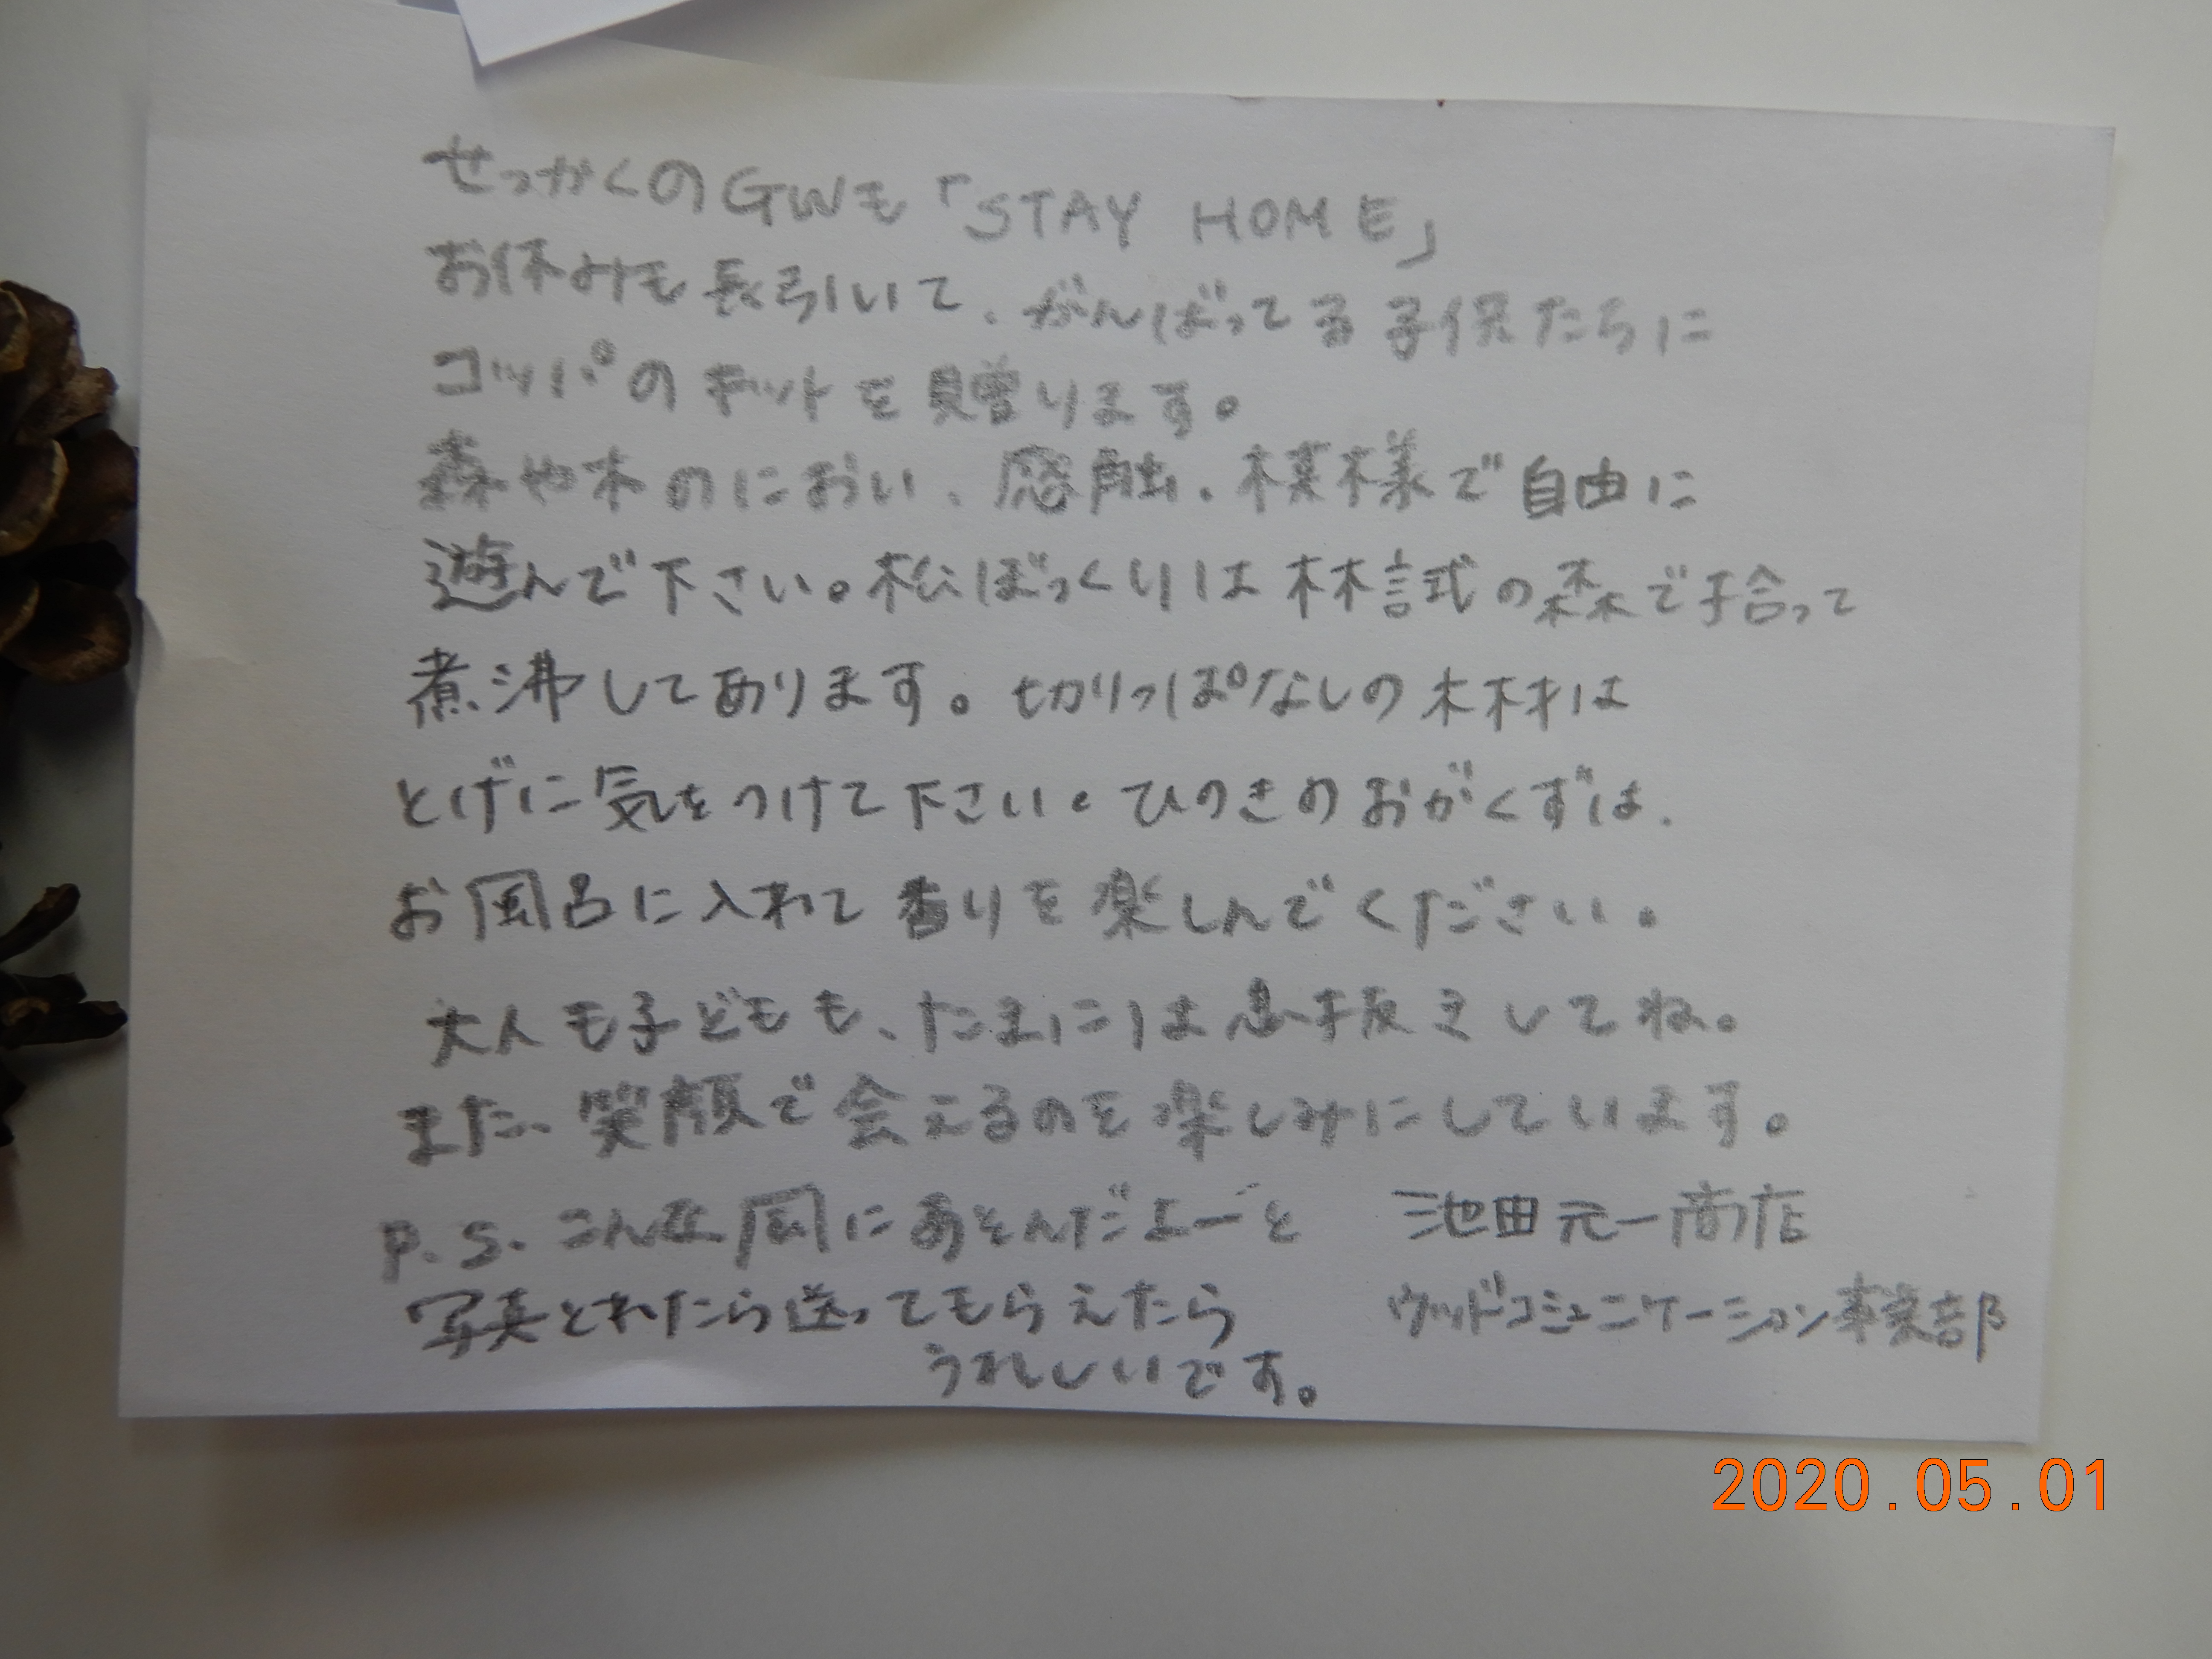 せっかくのGWも「STAY HOME」
お休みも長引いて、がんばってる子供たちに
コッパのキットを贈ります。
森や木のにおい、感触、模様で自由に
遊んで下さい。松ぼっくりは林試の森で拾って
煮沸してあります。切りっぱなしの木材は
とげに気をつけて下さい。ひのきのおがくずは、
お風呂に入れて香りを楽しんでください。
大人も子どもも、たまには息抜きしてね。
また、笑顔で会えるのを楽しみにしています。
P.S. こんな風にあそんだよーと
写真とれたら送ってもらえたら
うれしいです。
池田元一商店
ウッドコミュニケーション事業部
2020.05.01